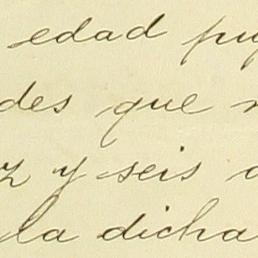 edad pu
des que
z y seis
la dicha